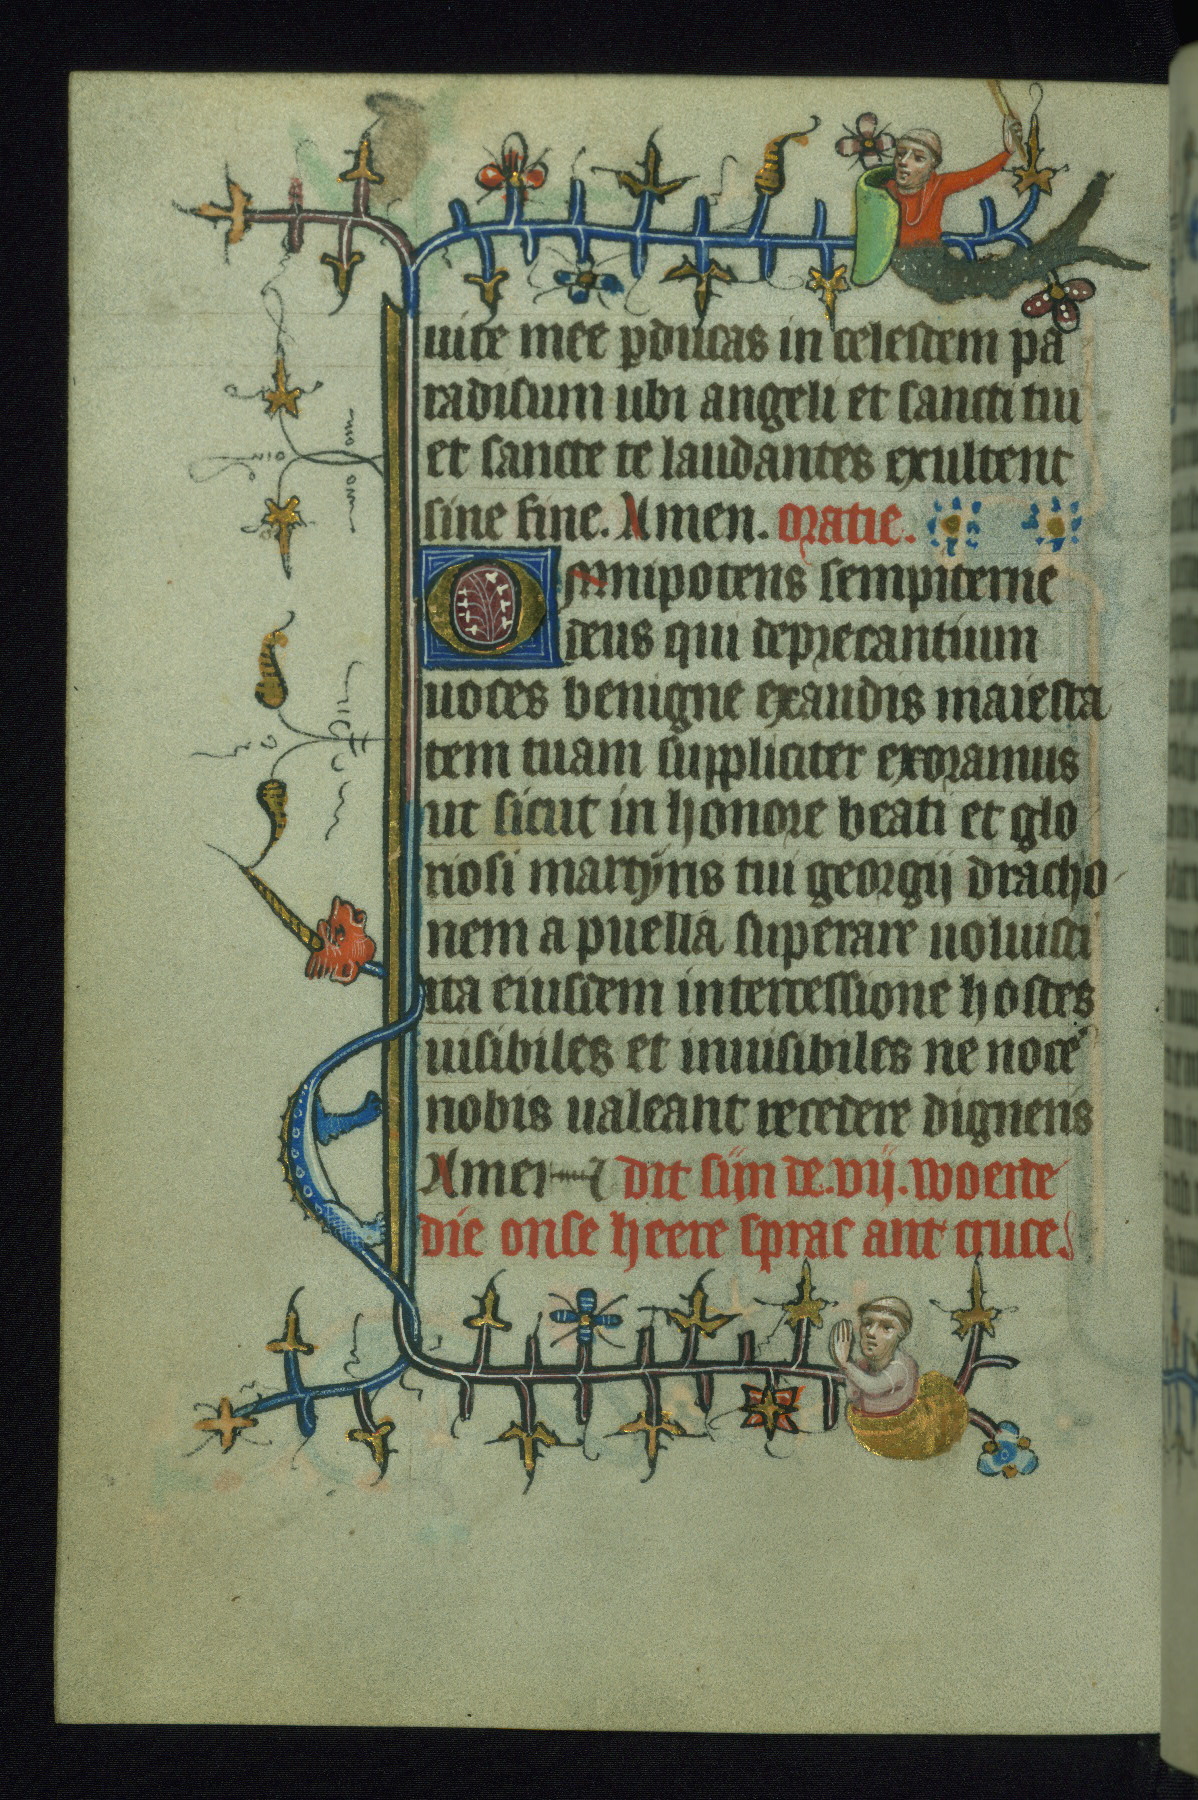 uite mee ꝑducas in celestem pa
radisum ubi angeli et sancti tui
et sancte te laudantes exultent
sine fine. Amen. oratie.
Omnipotens sempiterne
deus qui deprecantium
uoces benigne exaudis maiesta
tem tuam suppliciter exoramus
ut sicut in honore beati et glo
riosi martyris tui georgij dracho
nem a puella superare uoluisti
ita eiusdem intercessione hostes
uisibiles et inuisibiles ne nocẽ
nobis ualeant recedere digneris
Amen dit sijn de .vij. woerde
die onse heere sprac ant cruce.